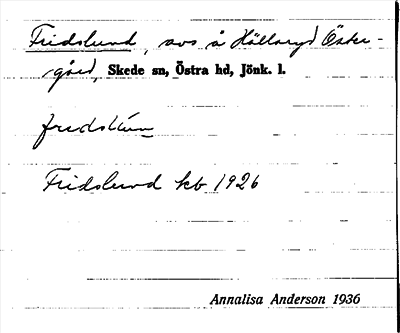 Fridslund, avs å Hällaryd Öster-
gård, Skede sn, Östra hd, Jönk. l.
Fridslund kb 1926
Annalisa Anderson 1936